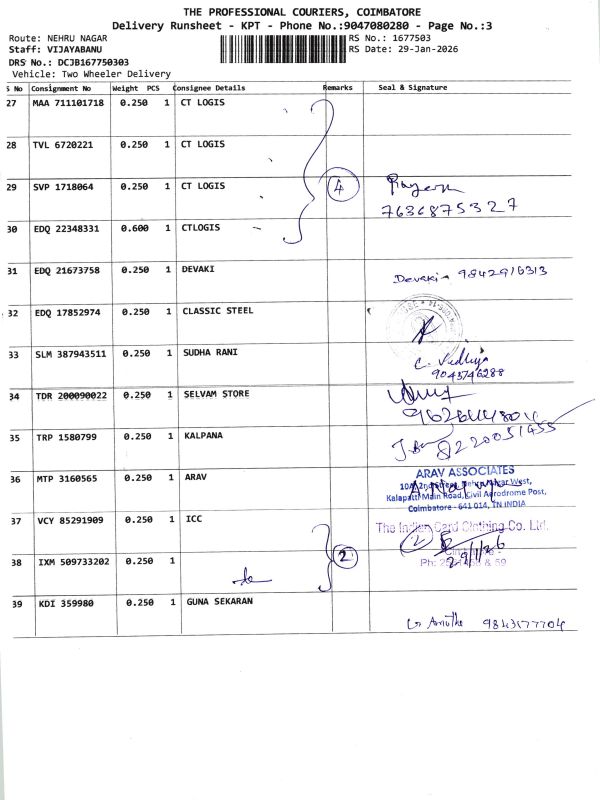 THE PROFESSIONAL COURIERS, COIMBATORE
Delivery Runsheet - KPT - Phone No.:9047080280 - Page No.:3
Route: NEHRU NAGAR
RS No.: 1677503
Staff: VIJAYABANU
RS Date: 29-Jan-2026
DRS No.: DCJB167750303
Vehicle: Two Wheeler Delivery
S No Consignment No Weight PCS Consignee Details Remarks Seal & Signature
27 MAA 711101718 0.250 1 CT LOGIS
28 TVL 6720221 0.250 1 CT LOGIS
29 SVP 1718064 0.250 1 CT LOGIS 4
7636875327
30 EDQ 22348331 0.600 1 CTLOGIS
31 EDQ 21673758 0.250 1 DEVAKI Devaki 9842916313
32 EDQ 17852974 0.250 1 CLASSIC STEEL
33 SLM 387943511 0.250 1 SUDHA RANI C. Vidhya
9043746288
34 TDR 200090022 0.250 1 SELVAM STORE
35 TRP 1580799 0.250 1 KALPANA
36 MTP 3160565 0.250 1 ARAV ARAV ASSOCIATES
Nehru Nagar West,
Kalapatti Main Road, Civil Aerodrome Post,
Coimbatore - 641 014, TN INDIA
37 VCY 85291909 0.250 1 ICC The Indian Card Clothing Co. Ltd.
38 IXM 509733202 0.250 1 2 29/1/26
39 KDI 359980 0.250 1 GUNA SEKARAN